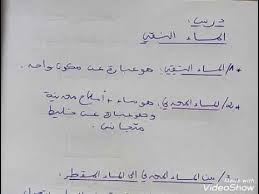 درس:
الماء النقي
1/ الماء النقي: هو عبارة عن مكون واحد.
2/ الماء المعدني: هو ماء + أملاح معدنية
وهو عبارة عن خليط
متجانس.
3/ من الماء المعدني الى الماء المقطر:
Made with
VivaVideo